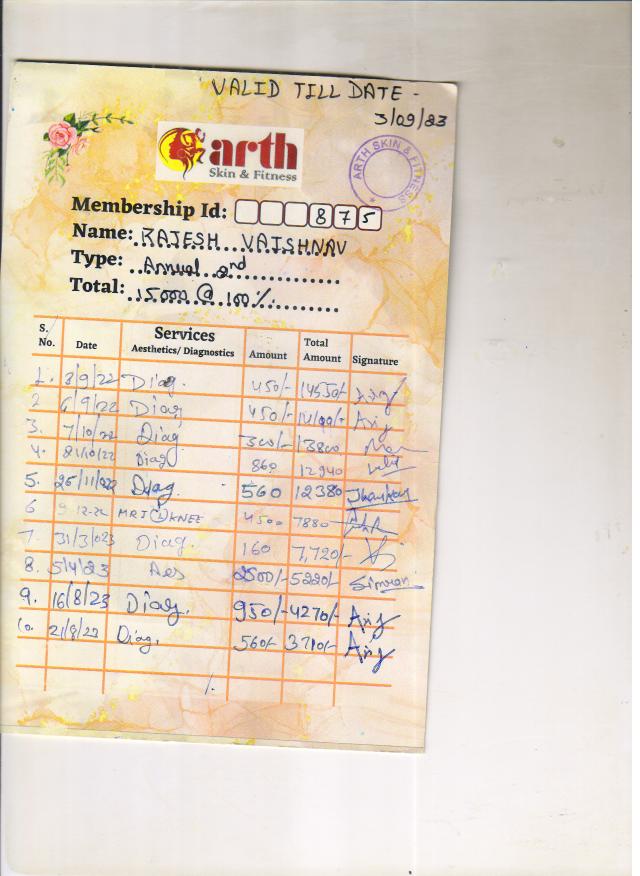 VALID TILL DATE -
3/09/23
arth
Skin & Fitness
ARTH SKIN & FITNESS
Membership Id: 875
Name: RAJESH VAISHNAV
Type: Annual 2nd
Total: 15000 @ 100%
S. No. Date Services Aesthetics/ Diagnostics Amount Total Amount Signature
1. 3/9/22 Diag. 450/- 14550/-
2 6/9/22 Diag 450/-
3. 7/10/22 Diag 300/- 13800
4. 21/10/22 Diag 860 12940
5. 25/11/22 Diag. 560 12380
6 9-12-22 MRI (L) KNEE 4500 7880
7. 31/3/023 Diag. 160 7,720/-
8. 5/4/23 Aes 2500/- 5220/- Simran
9. 16/8/23 Diag. 950/- 4270/-
10. 21/8/23 Diag. 560/- 3710/-